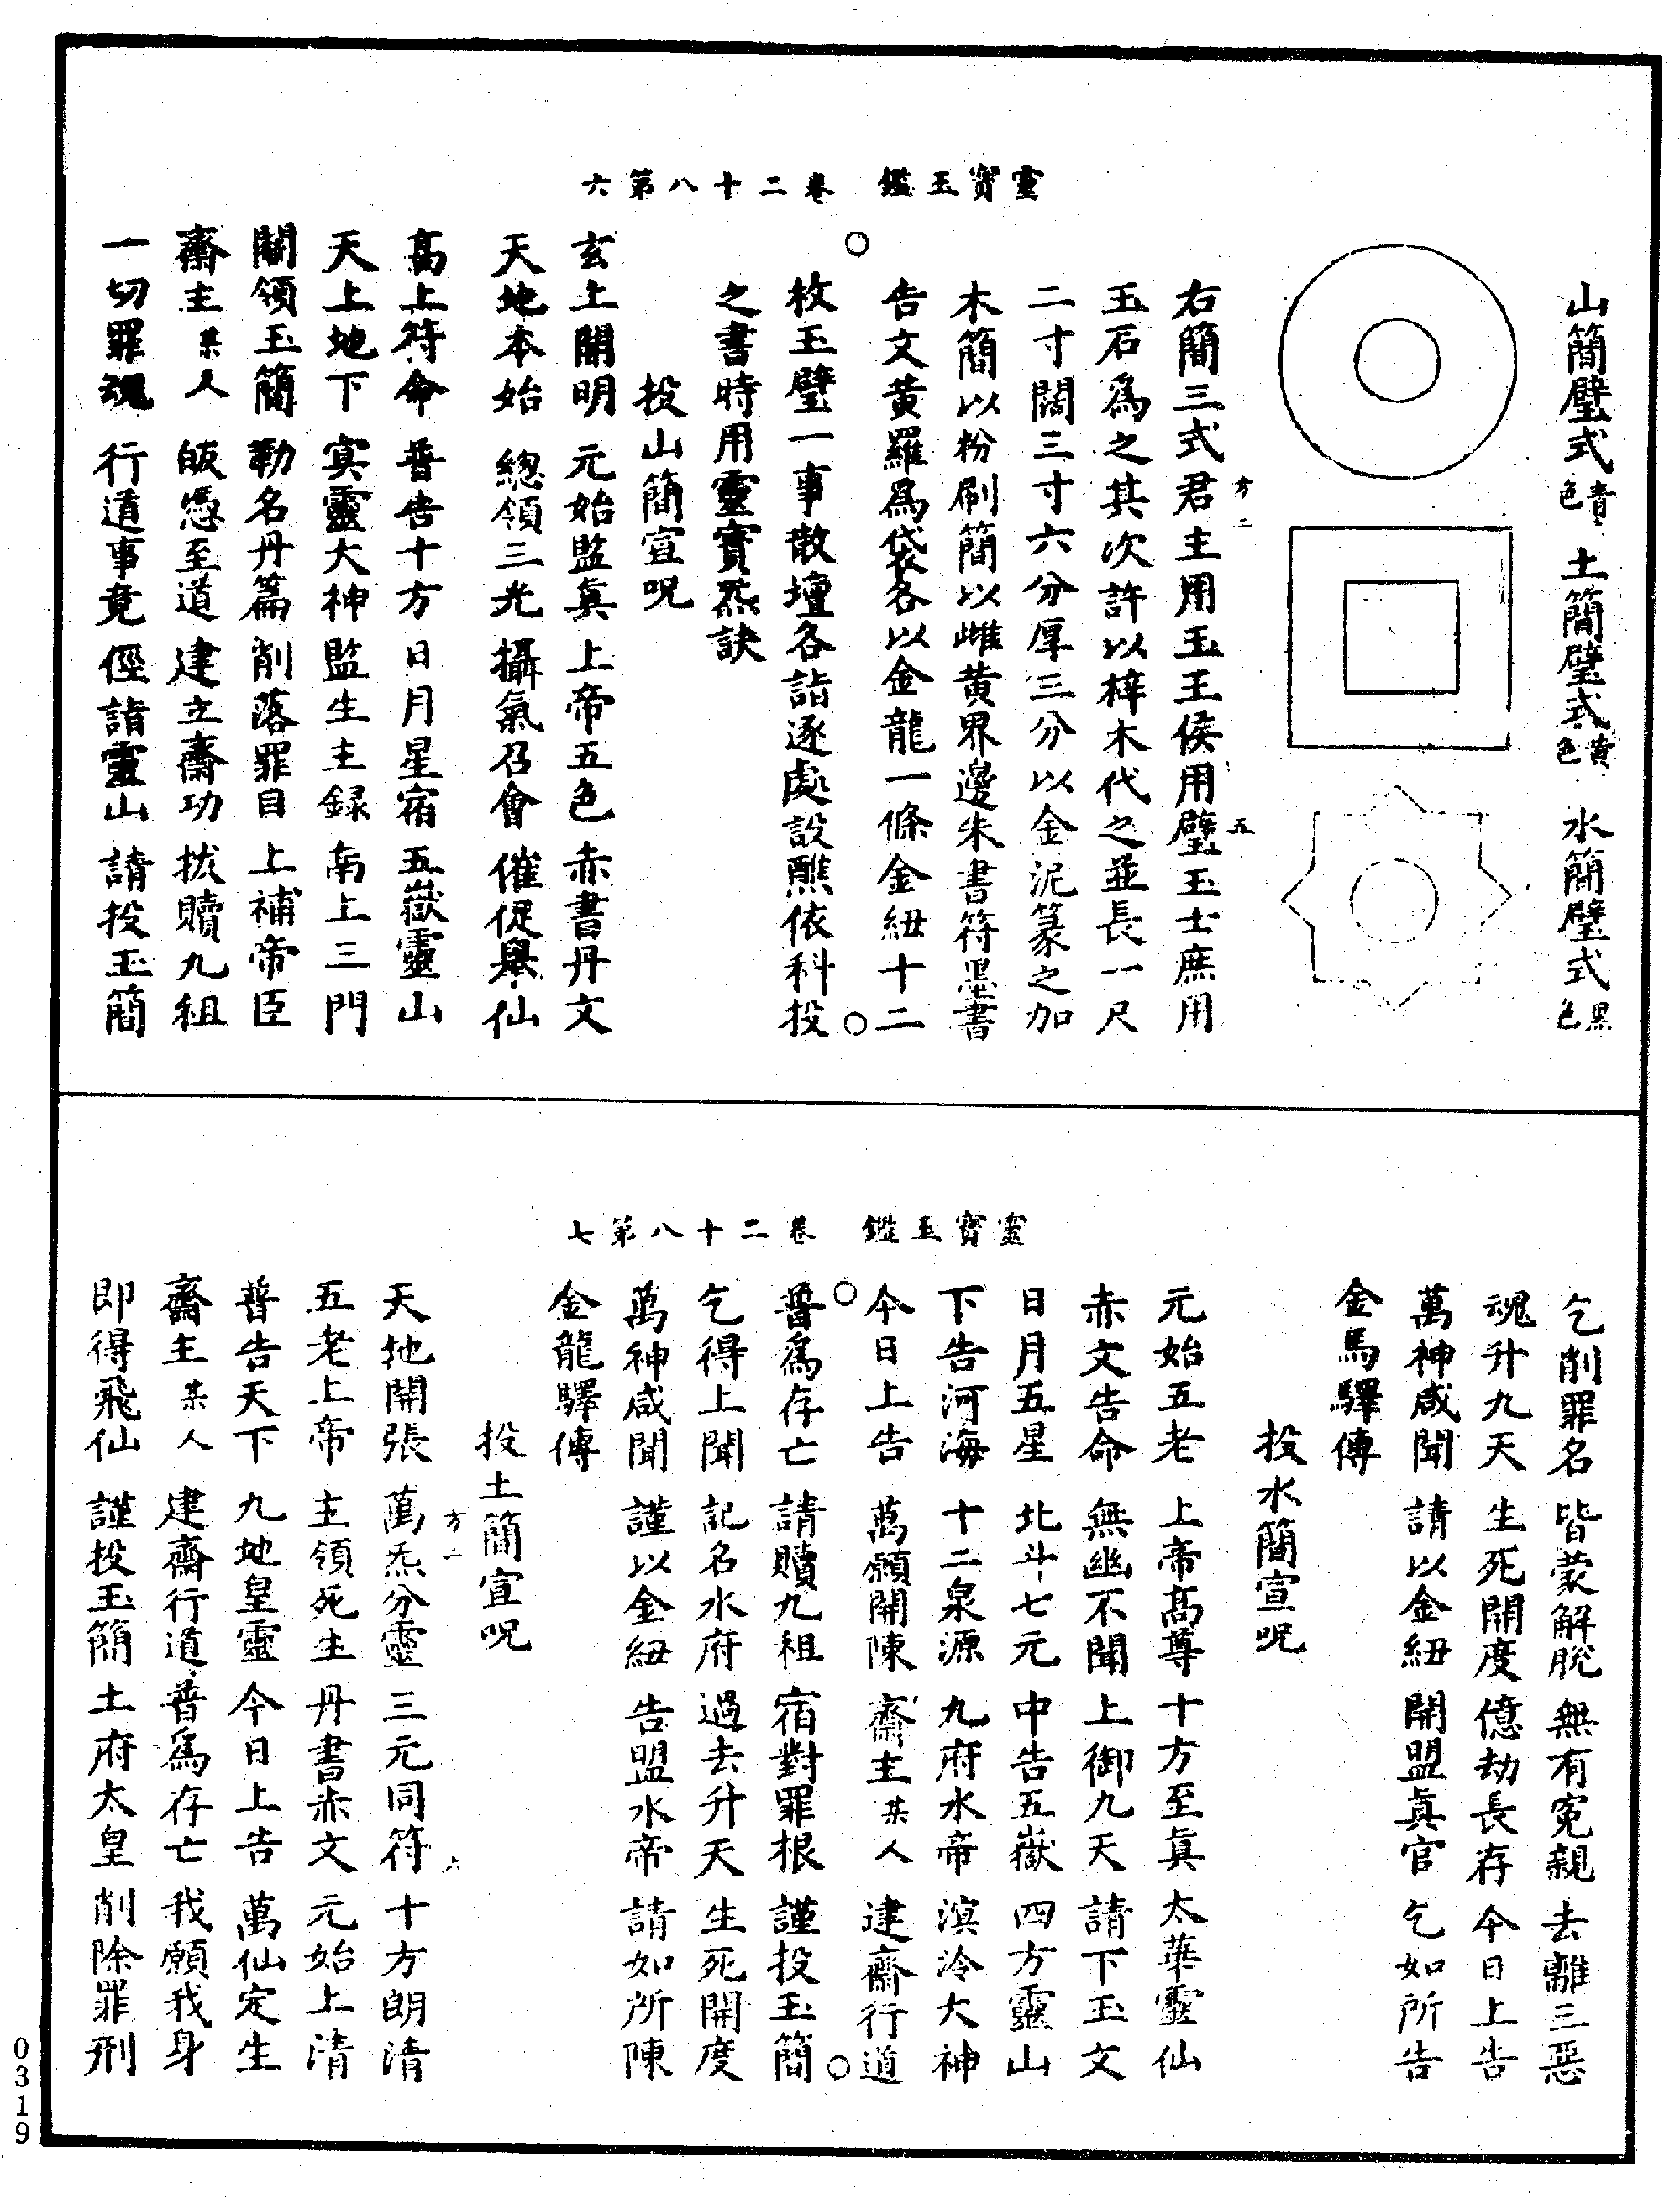 靈寶玉鑑 卷二十八第六
山簡璧式青色 土簡璧式黃色 水簡璧式黑色
方二 五
右簡三式君主用玉王侯用璧玉士庶用
玉石爲之其次許以梓木代之並長一尺
二寸闊三寸六分厚三分以金泥篆之加
木簡以粉刷簡以雌黃界邊朱書符墨書
告文黃羅爲袋各以金龍一條金紐十二
枚玉璧一事散壇各詣逐處設醮依科投
之書時用靈寶炁訣
投山簡宣呪
玄上開明 元始監眞 上帝五色 赤書丹文
天地本始 總領三光 攝氣召會 催促舉仙
高上符命 普告十方 日月星宿 五嶽靈山
天上地下 冥靈大神 監生主録 南上三門
關領玉簡 勒名丹篇 削落罪目 上補帝臣
齋主某人 皈憑至道 建立齋功 拔贖九祖
一切罪魂 行道事竟 徑詣靈山 請投玉簡
靈寶玉鑑 卷二十八第七
乞削罪名 皆蒙解脫 無有寃親 去離三惡
魂升九天 生死開度 億劫長存 今日上告
萬神咸聞 請以金紐 開盟眞官 乞如所告
金馬驛傳
投水簡宣呪
元始五老 上帝高尊 十方至眞 太華靈仙
赤文告命 無幽不聞 上御九天 請下玉文
日月五星 北斗七元 中告五嶽 四方靈山
下告河海 十二泉源 九府水帝 溟泠大神
今日上告 萬願開陳 齋主某人 建齋行道
普爲存亡 請贖九祖 宿對罪根 謹投玉簡
乞得上聞 記名水府 過去升天 生死開度
萬神咸聞 謹以金紐 告盟水帝 請如所陳
金龍驛傳
投土簡宣呪
方二 六
天地開張 萬炁分靈 三元同符 十方朗清
五老上帝 主領死生 丹書赤文 元始上清
普告天下 九地皇靈 今日上告 萬仙定生
齋主某人 建齋行道 普爲存亡 我願我身
即得飛仙 謹投玉簡 土府太皇 削除罪刑
0319